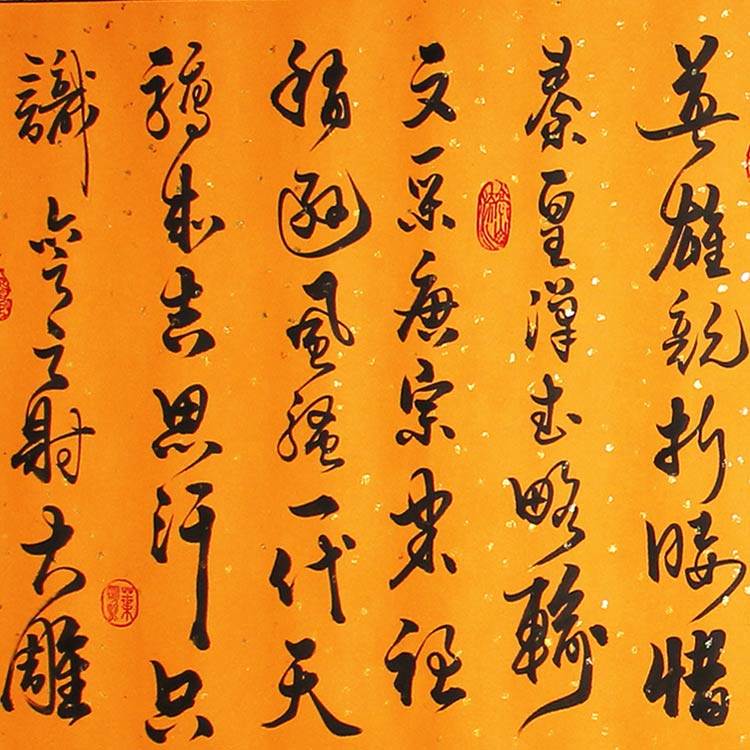 英雄競折腰惜
秦皇漢武略輸
文采唐宗宋祖
稍遜風騷一代天
驕成吉思汗只
識彎弓射大雕